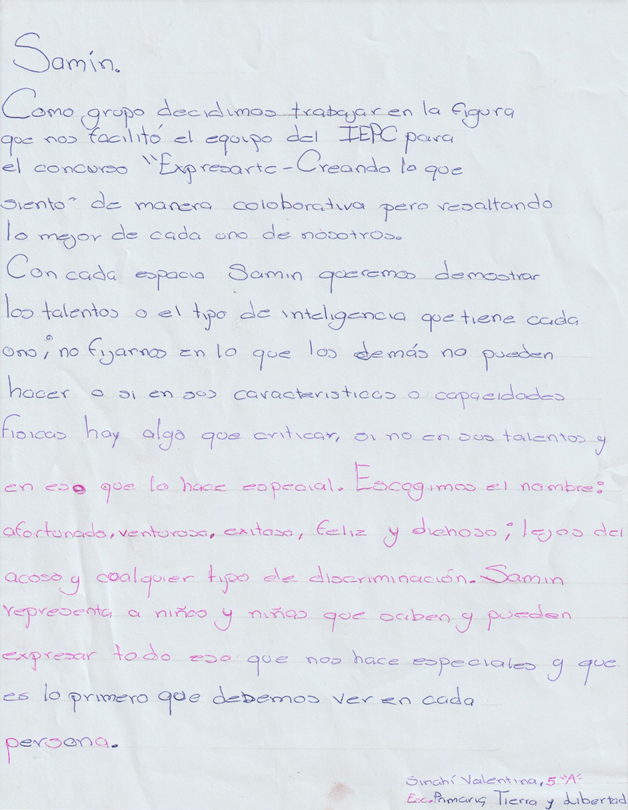 Samin.
Como grupo decidimos trabajar en la figura
que nos facilitó el equipo del IEPC para
el concurso "Expresarte-Creando lo que
siento" de manera coloborativa pero resaltando
lo mejor de cada uno de nosotros.
Con cada espacio Samin queremos demostrar
los talentos o el tipo de inteligencia que tiene cada
uno; no fijarnos en lo que los demás no pueden
hacer o si en sus caracteristicas o capacidades
fisicas hay algo que criticar, si no en sus talentos y
en eso que lo hace especial. Escogimos el nombre:
afortunado, venturoso, exitoso, feliz y dichoso; lejos del
acoso y cualquier tipo de discriminación. Samin
representa a niños y niñas que saben y pueden
expresar todo eso que nos hace especiales y que
es lo primero que debemos ver en cada
persona.
Sinahí Valentina, 5 "A"
Esc. Primaria, Tierra y Libertad